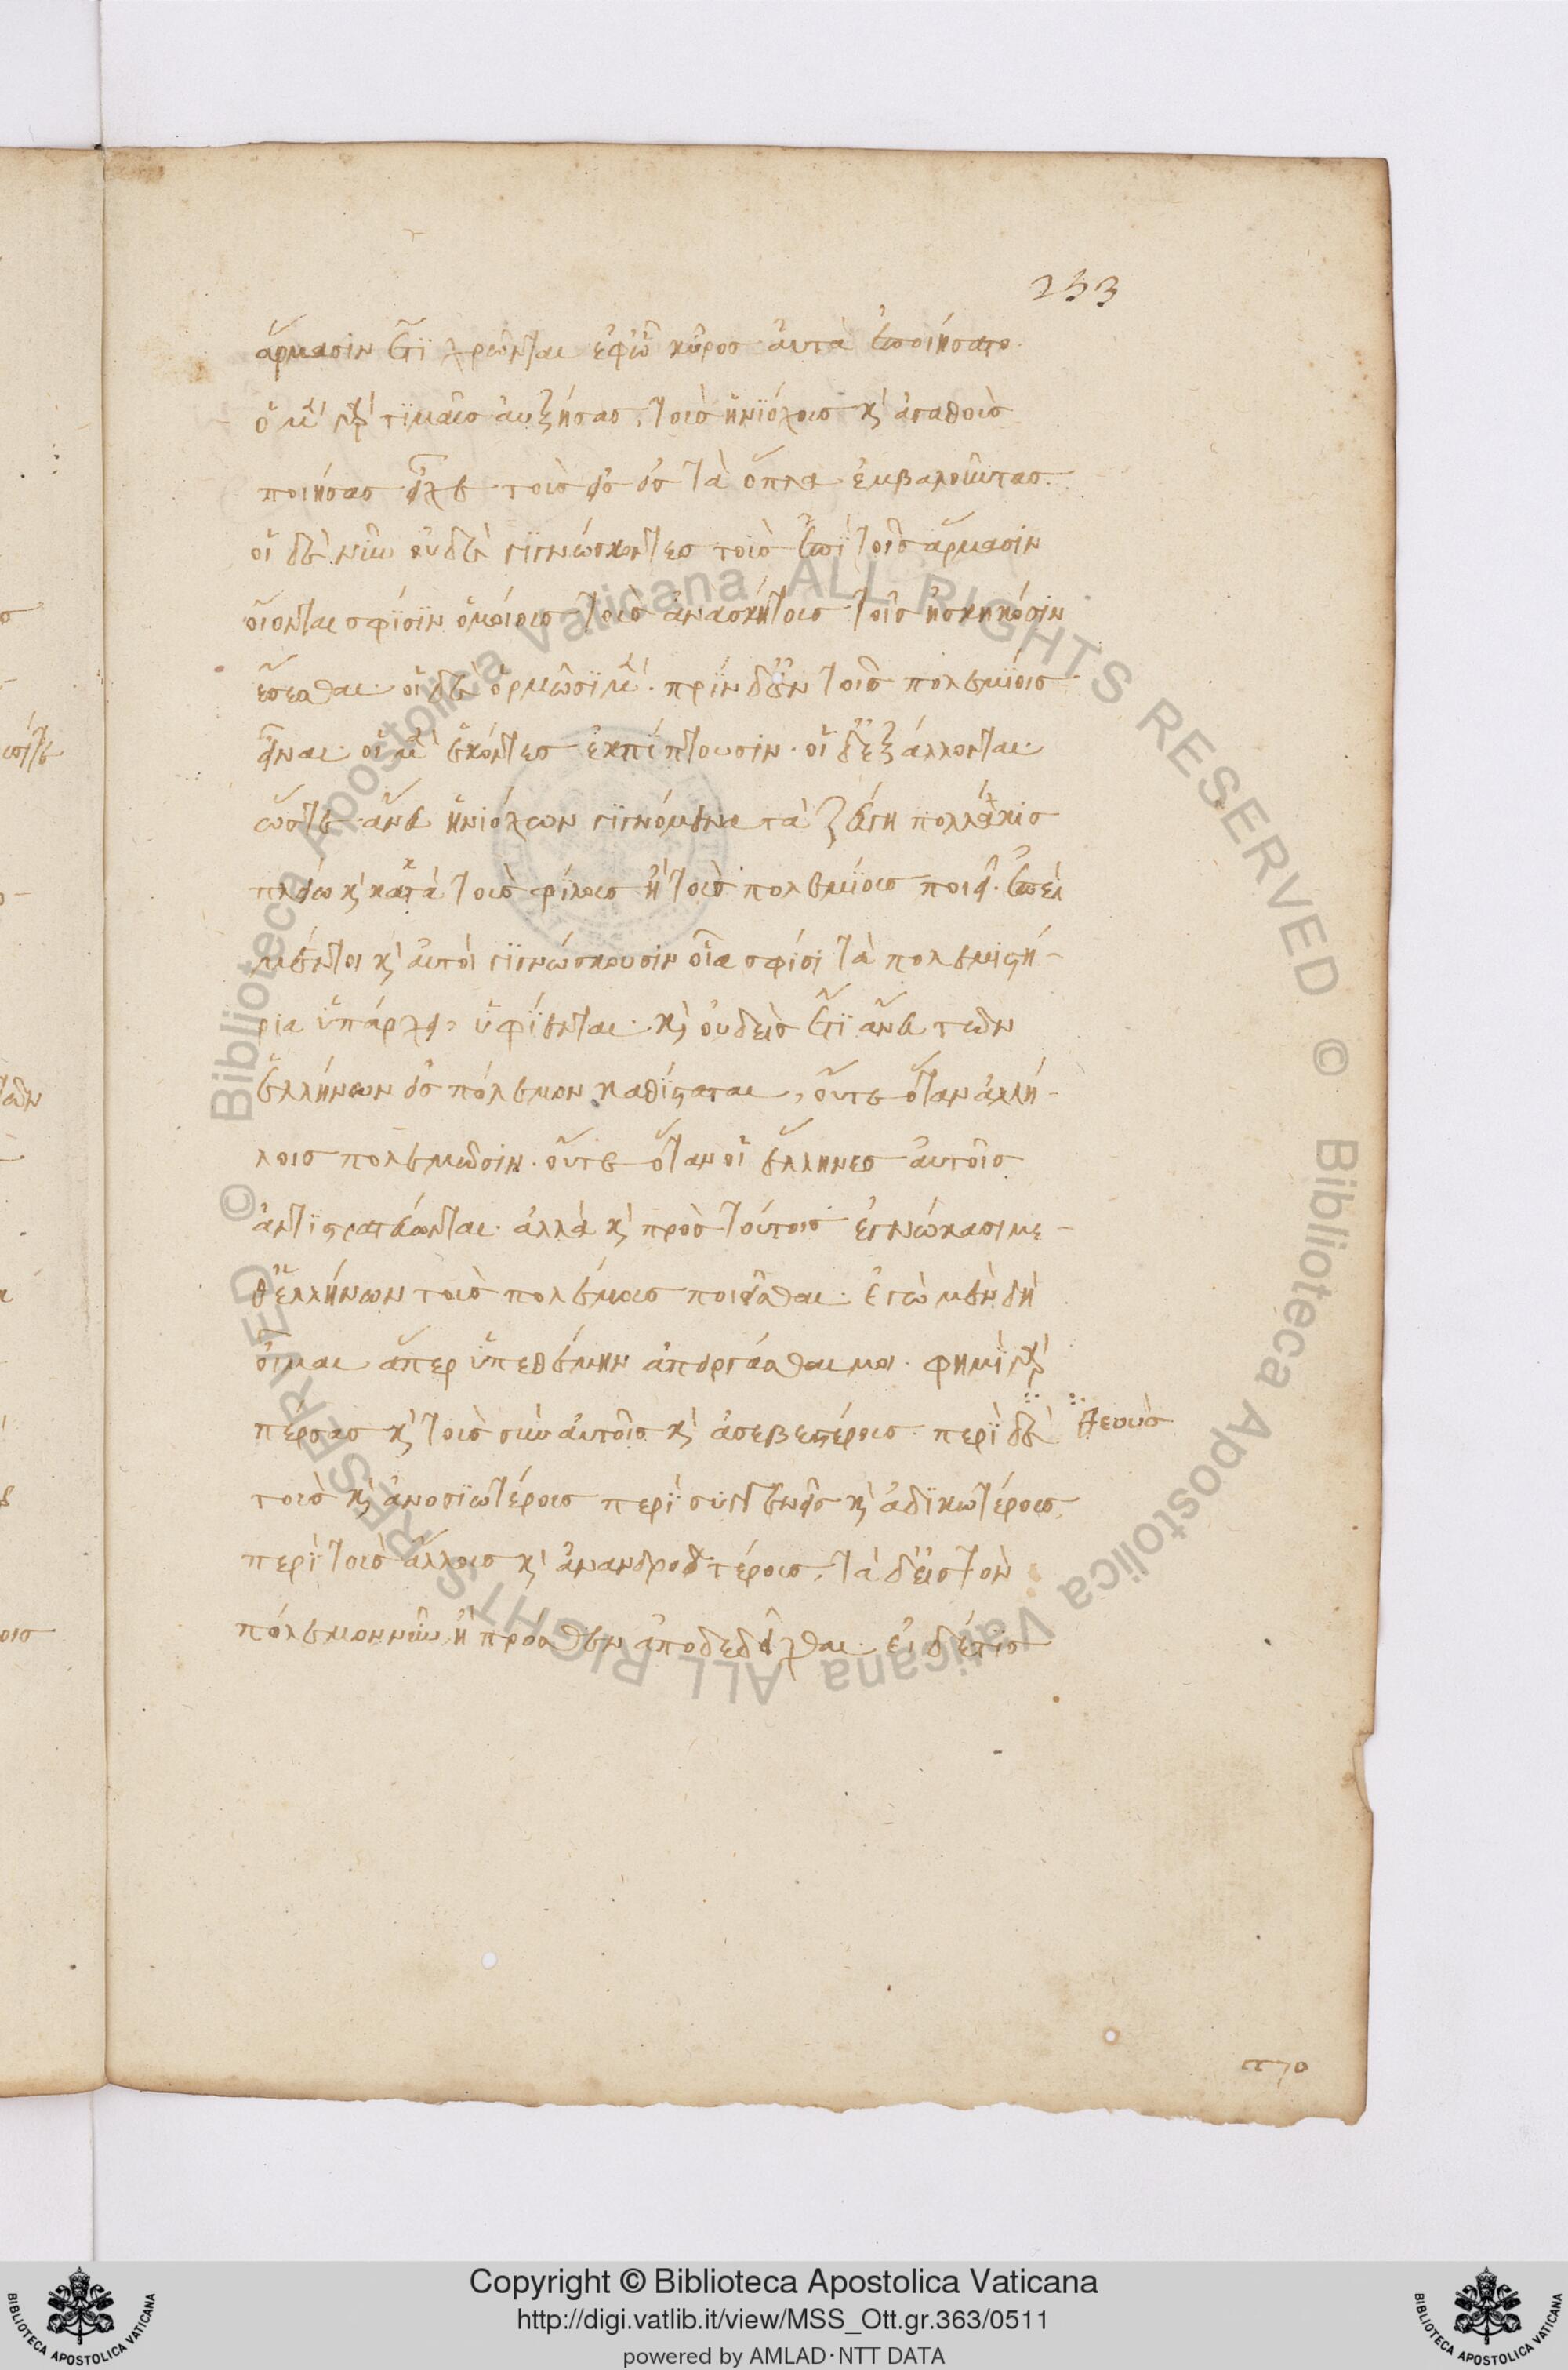 253
ἅρμασιν ἔτι χρῶνται ἐφ ὧ κῦρος αὐτὰ ἐποιήσατο.
ὁ μὲν γὰρ τιμαῖς αὐξήσας τοὺς ἡνιόχους καὶ ἀγαθοὺς
ποιήσας εἶχε τοὺς εἰς τὰ ὅπλα ἐμβαλοῦντας.
οἱ δὲ νῦν οὐδὲ γιγνώσκοντες τοὺς ἐπὶ τοῖς ἅρμασιν
οἴονται σφίσιν ὁμοίους τοὺς ἀνασκήτους τοῖς ἠσκηκόσιν
ἔσεσθαι. οἱ δὲ ὁρμῶσι μέν. πρὶν δ' ἐν τοῖς πολεμίοις
εἶναι. οἱ μὲν ἑκόντες ἐκπίπτουσιν. οἱ δ' ἐξάλλονται.
ὥστε ἄνευ ἡνιόχων γιγνόμενα τὰ ζεύγη πολλάκις
πλείω κακὰ τοὺς φίλους ἢ τοὺς πολεμίους ποιεῖ. ἐπεὶ
μέντοι καὶ αὐτοὶ γιγνώσκουσιν οἷα σφίσι τὰ πολεμιστή-
ρια ὑπάρχει, ὑφίενται. καὶ οὐδεὶς ἔτι ἄνευ τῶν
ἑλλήνων εἰς πόλεμον καθίσταται, οὔτε ὅταν ἀλλή-
λοις πολεμῶσιν. οὔτε ὅταν οἱ ἕλληνες αὐτοῖς
ἀντιστρατεύωνται. ἀλλὰ καὶ πρὸς τούτους ἐγνώκασι με-
θ' ἑλλήνων τοὺς πολέμους ποιεῖσθαι. ἐγὼ μὲν δὴ
οἶμαι ἅπερ ὑπεθέμην ἀπειργάσθαι μοι. φημὶ γὰρ
πέρσας καὶ τοὺς σὺν αὐτοῖς καὶ ἀσεβεστέρους περὶ δὲ
θεοὺς
τοὺς καὶ ἀνοσιωτέρους περὶ συγγενεῖς καὶ ἀδικωτέρους
περὶ τοὺς ἄλλους καὶ ἀνανδροτέρους. τὰ δ' εἰς τὸν
πόλεμον νῦν ἢ πρόσθεν ἀποδεδεῖχθαι. εἰ δέ τις
Copyright © Biblioteca Apostolica Vaticana
http://digi.vatlib.it/view/MSS_Ott.gr.363/0511
powered by AMLAD·NTT DATA